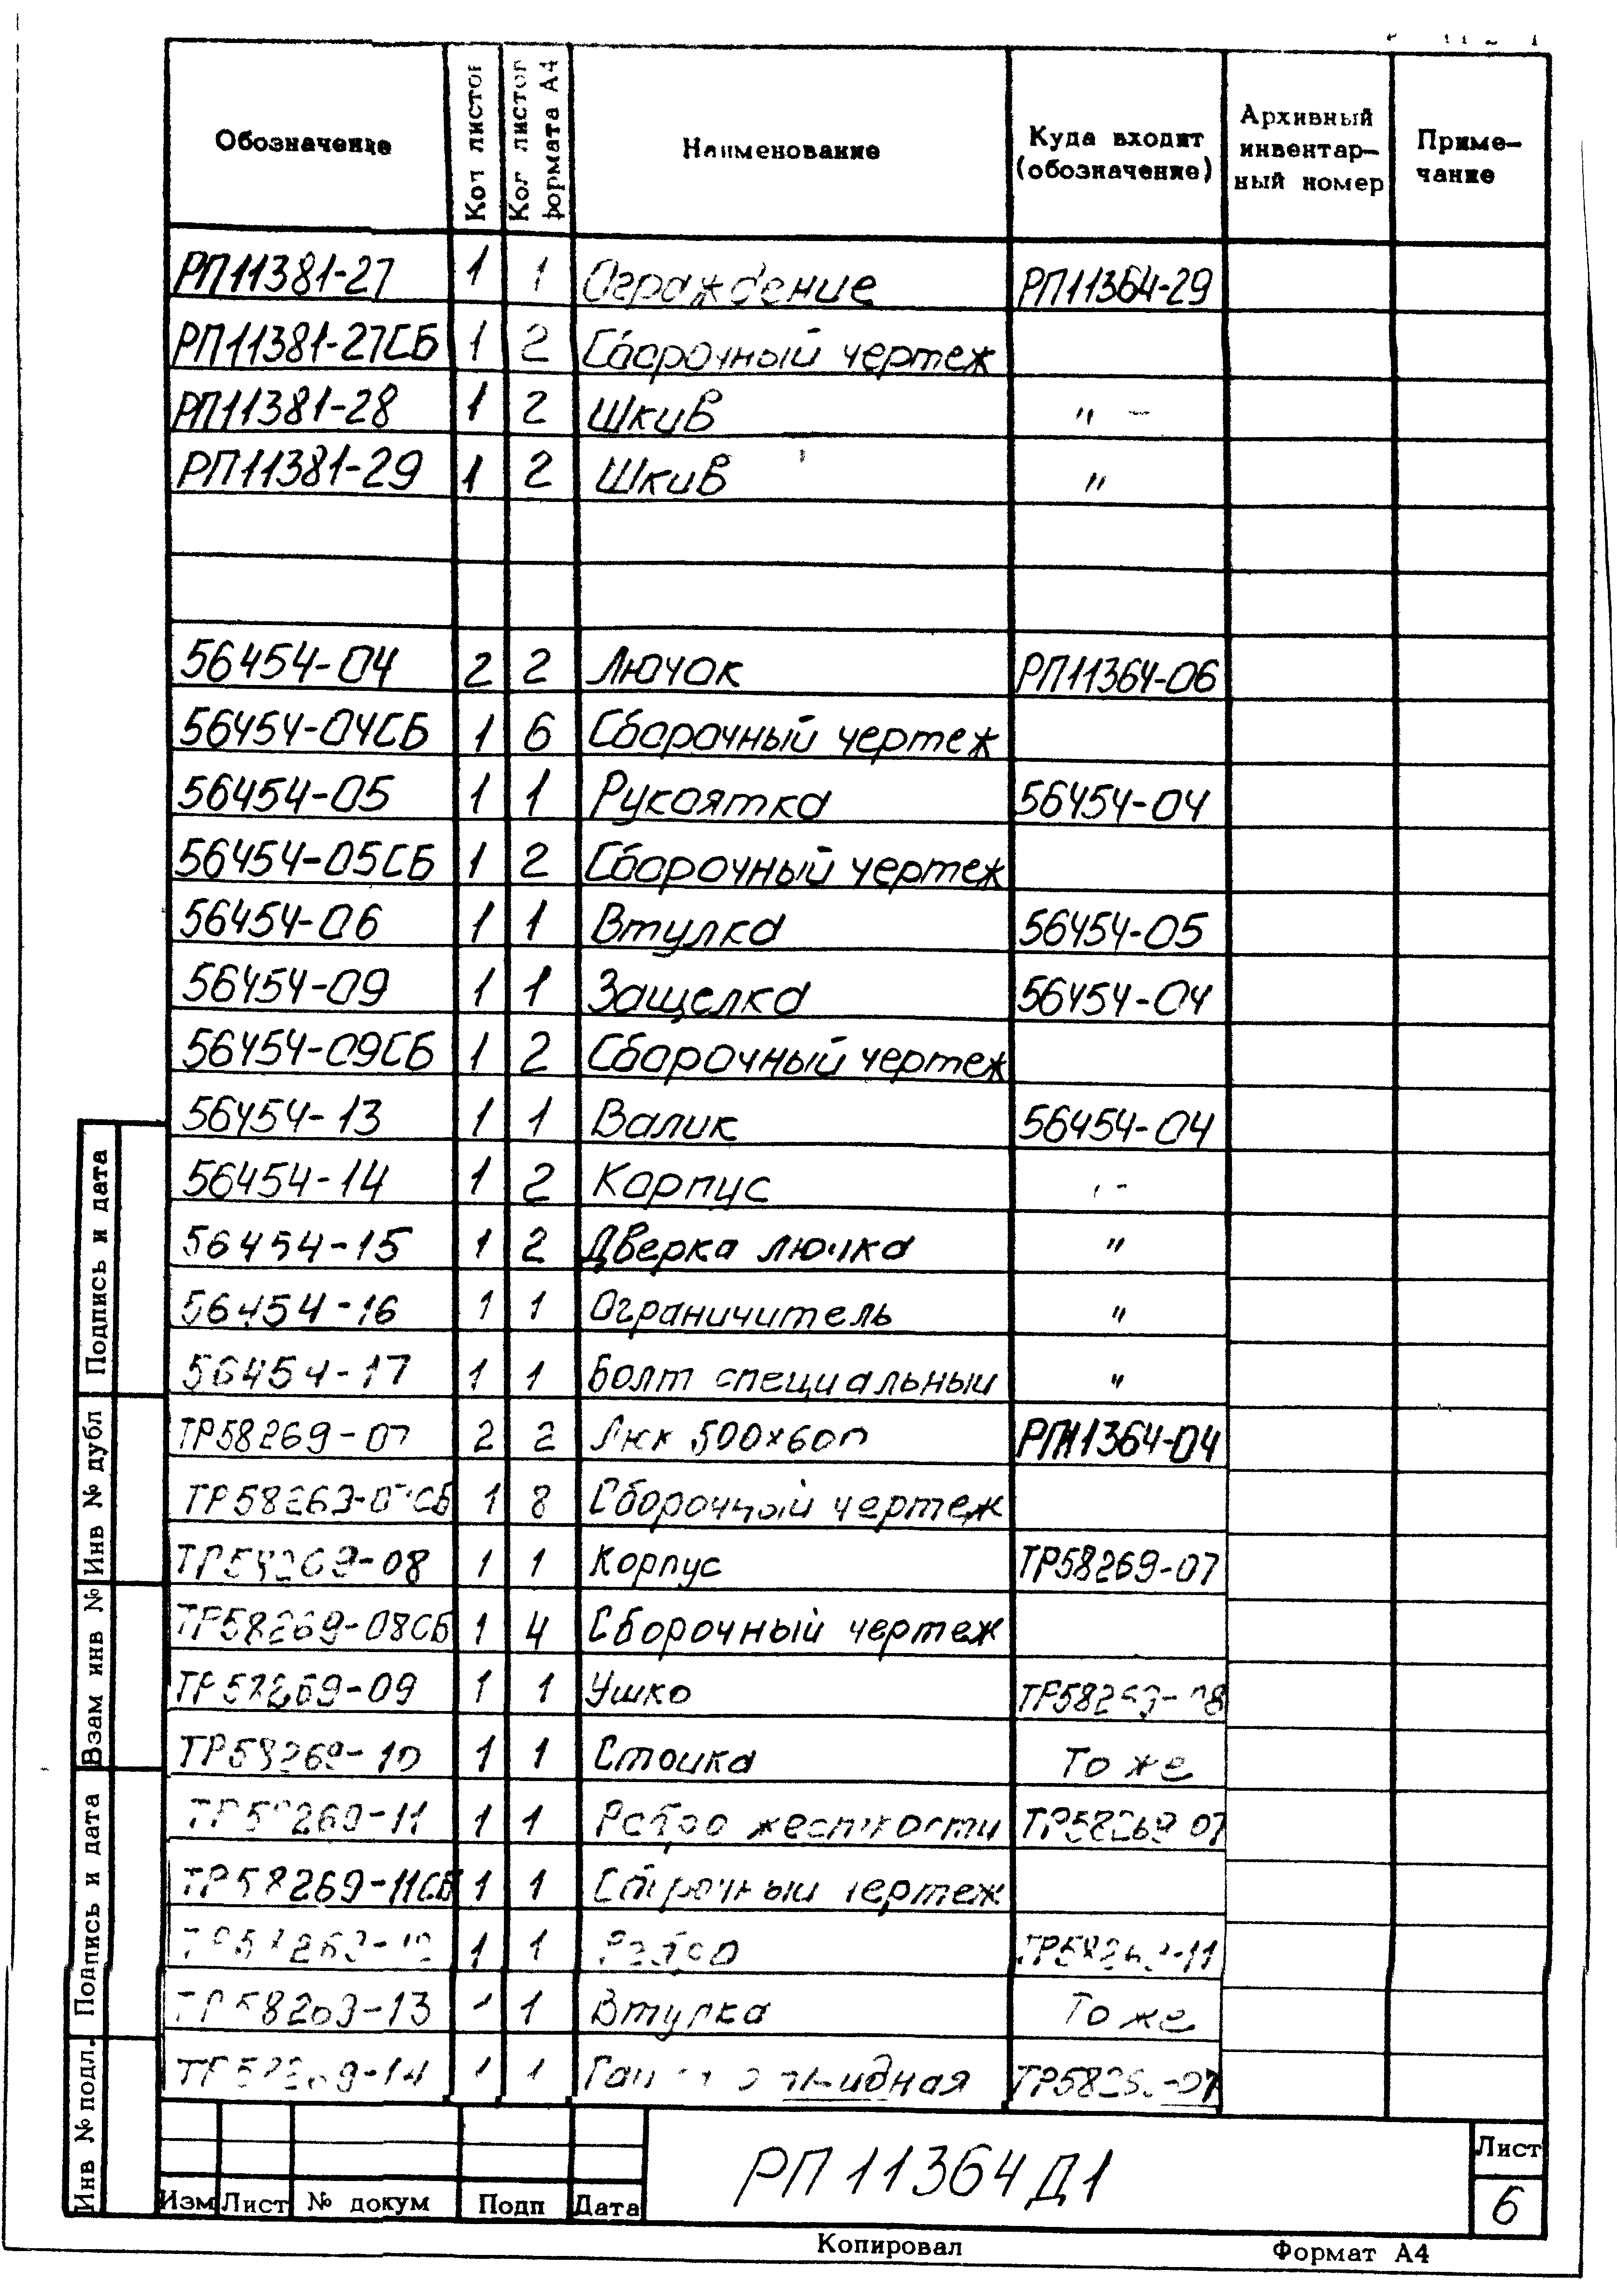 Обозначение Кол листов Кол листов формата А4 Наименование Куда входит (обозначение) Архивный инвентар-ный номер Приме-чание
РП11381-27 1 1 Ограждение РП11364-29
РП11381-27СБ 1 2 Сборочный чертеж
РП11381-28 1 2 Шкив " -
РП11381-29 1 2 Шкив "
56454-04 2 2 Лючок РП11364-06
56454-04СБ 1 6 Сборочный чертеж
56454-05 1 1 Рукоятка 56454-04
56454-05СБ 1 2 Сборочный чертеж
56454-06 1 1 Втулка 56454-05
56454-09 1 1 Защелка 56454-04
56454-09СБ 1 2 Сборочный чертеж
56454-13 1 1 Валик 56454-04
56454-14 1 2 Корпус
56454-15 1 2 Дверка лючка "
56454-16 1 1 Ограничитель "
56454-17 1 1 Болт специальный "
ТР58269-07 2 2 Люк 500×600 РП11364-04
ТР58269-07СБ 1 8 Сборочный чертеж
ТР58269-08 1 1 Корпус ТР58269-07
ТР58269-08СБ 1 4 Сборочный чертеж
ТР58269-09 1 1 Ушко ТР58269-08
ТР58269-10 1 1 Стойка То же
ТР58269-11 1 1 Ребро жесткости ТР58269-07
ТР58269-11СБ 1 1 Сборочный чертеж
ТР58269-12 1 1 Ребро ТР58269-11
ТР58269-13 1 1 Втулка То же
ТР58269-14 1 1 ТР58269-07
РП11364Д1
Лист
6
Изм Лист № докум Подп Дата
Копировал Формат А4
Подпись и дата
Инв № дубл
Взам инв №
Подпись и дата
Инв № подл.